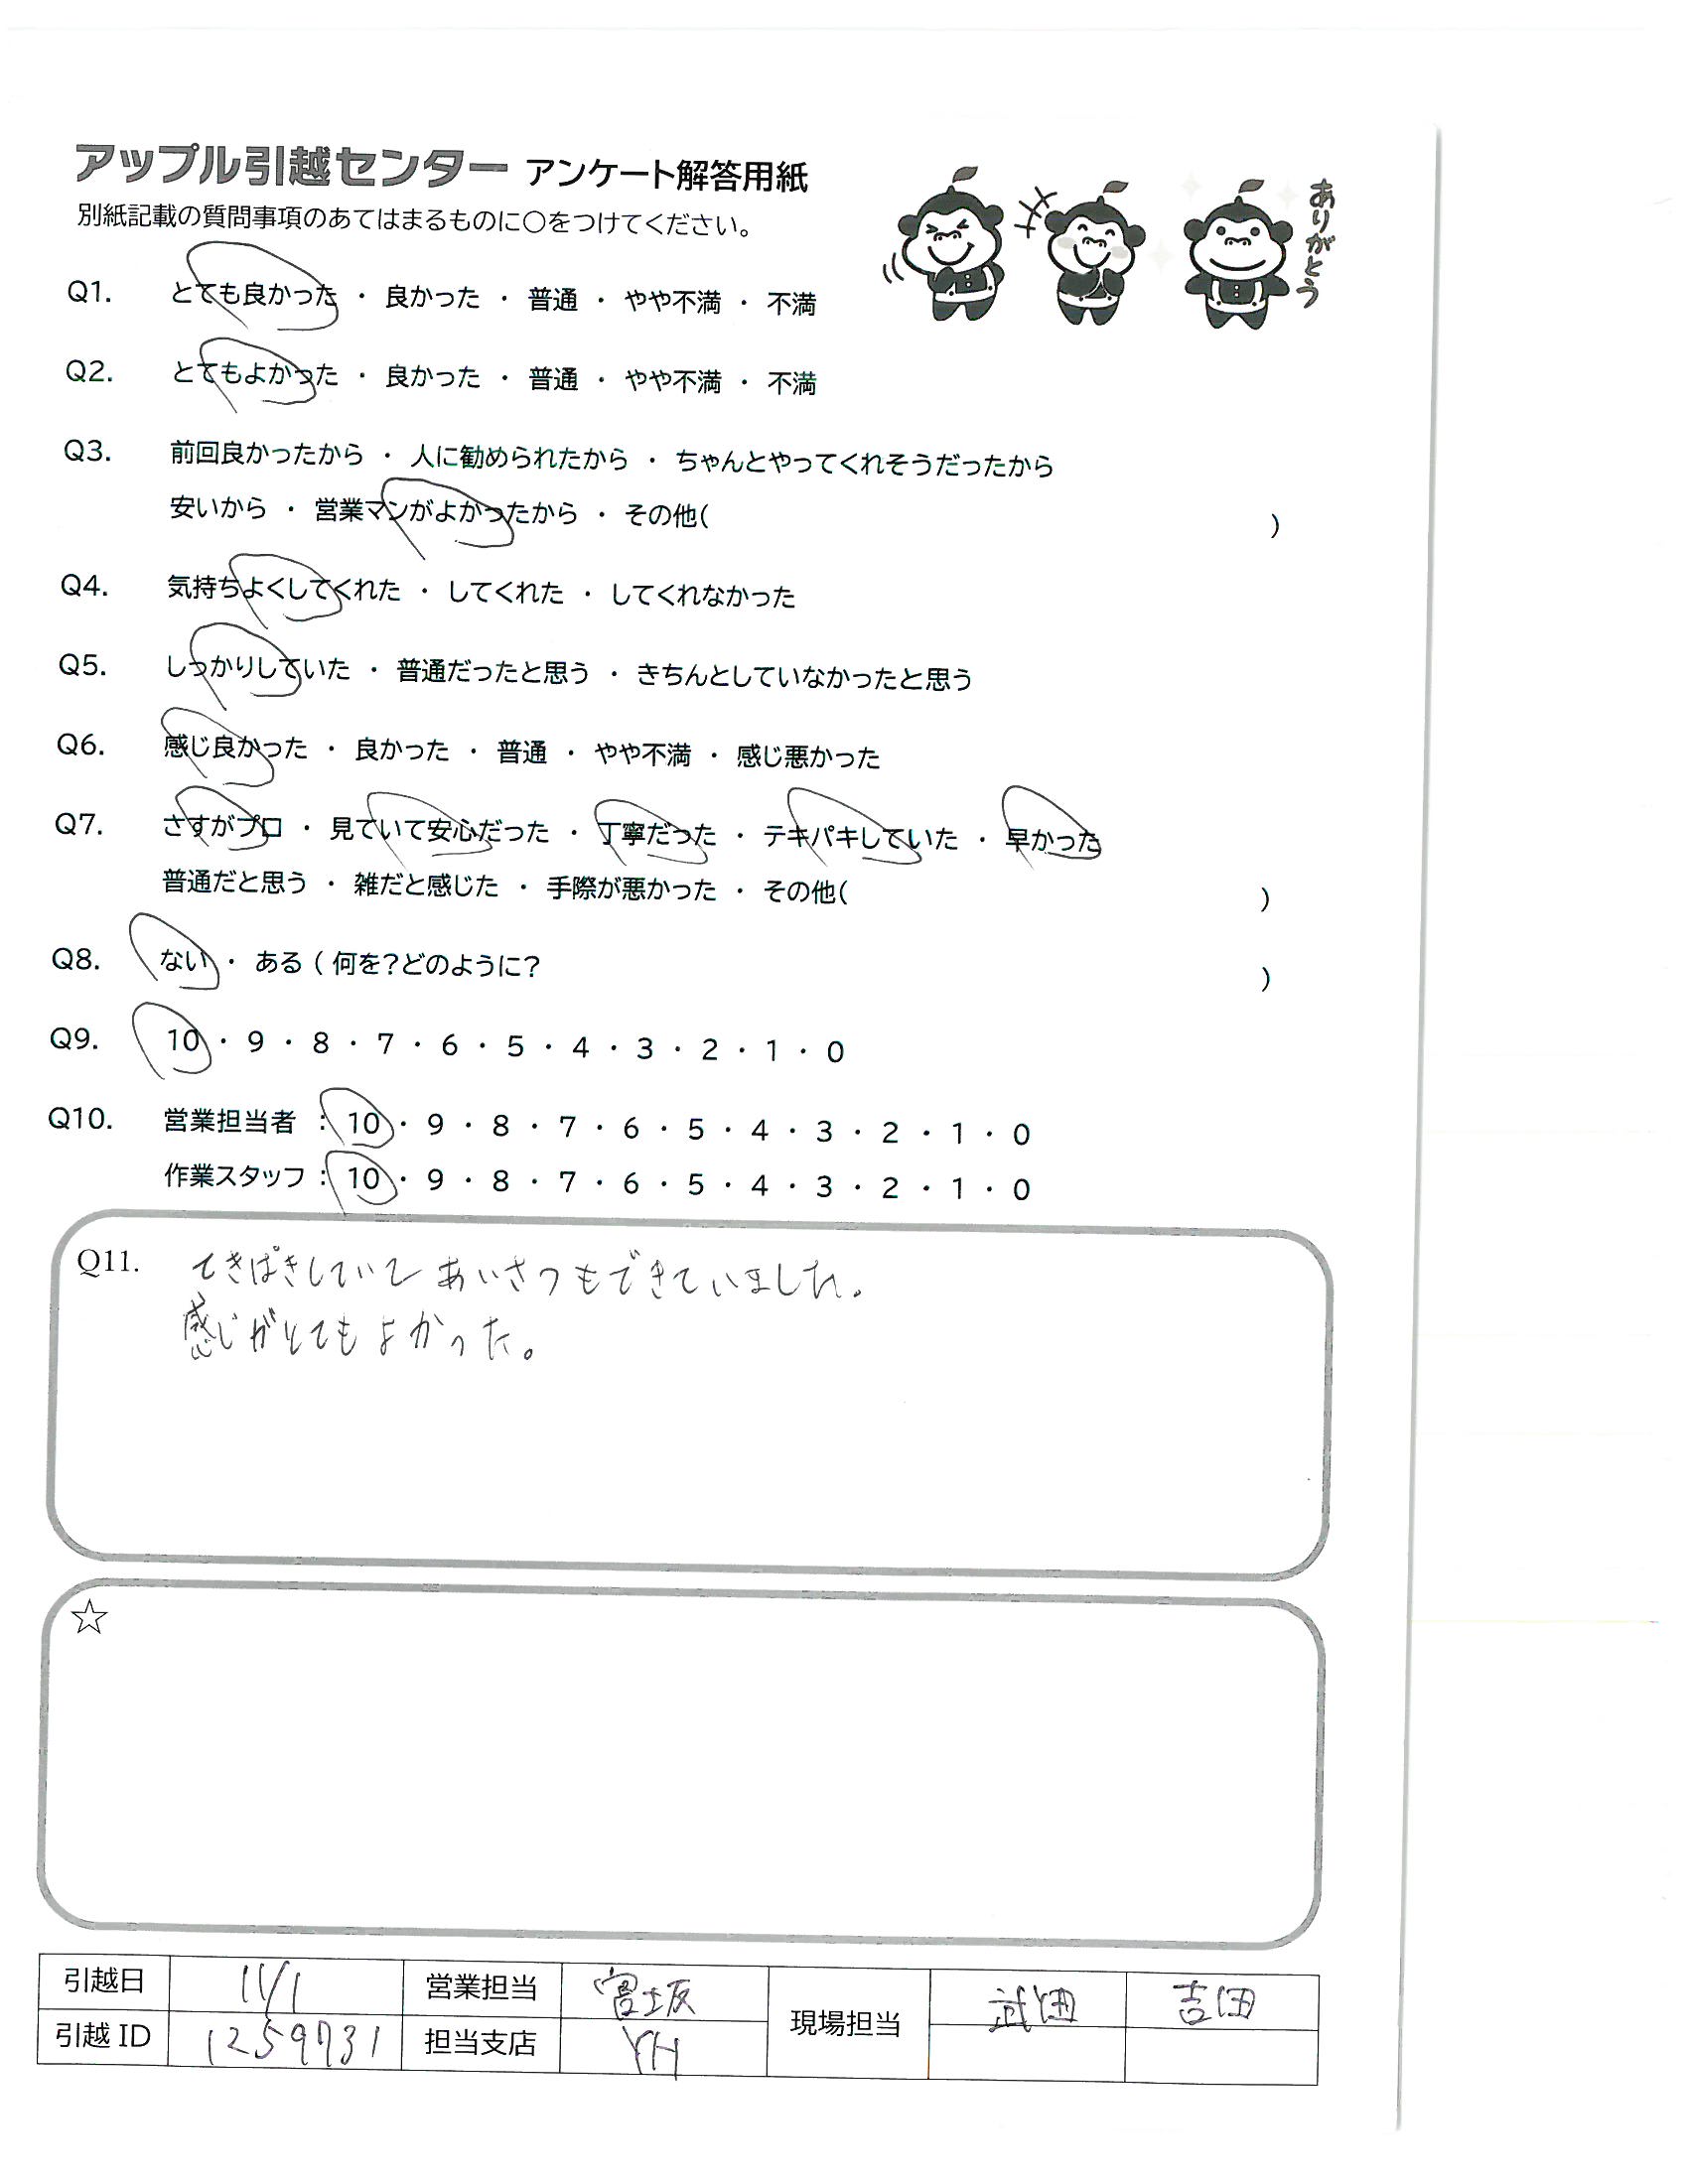 アップル引越センター アンケート解答用紙
別紙記載の質問事項のあてはまるものに〇をつけてください。
ありがとう
Q1. とても良かった ・ 良かった ・ 普通 ・ やや不満 ・ 不満
Q2. とてもよかった ・ 良かった ・ 普通 ・ やや不満 ・ 不満
Q3. 前回良かったから ・ 人に勧められたから ・ ちゃんとやってくれそうだったから
安いから ・ 営業マンがよかったから ・ その他( )
Q4. 気持ちよくしてくれた ・ してくれた ・ してくれなかった
Q5. しっかりしていた ・ 普通だったと思う ・ きちんとしていなかったと思う
Q6. 感じ良かった ・ 良かった ・ 普通 ・ やや不満 ・ 感じ悪かった
Q7. さすがプロ ・ 見ていて安心だった ・ 丁寧だった ・ テキパキしていた ・ 早かった
普通だと思う ・ 雑だと感じた ・ 手際が悪かった ・ その他( )
Q8. ない ・ ある ( 何を?どのように? )
Q9. 10 ・ 9 ・ 8 ・ 7 ・ 6 ・ 5 ・ 4 ・ 3 ・ 2 ・ 1 ・ 0
Q10. 営業担当者 : 10 ・ 9 ・ 8 ・ 7 ・ 6 ・ 5 ・ 4 ・ 3 ・ 2 ・ 1 ・ 0
作業スタッフ : 10 ・ 9 ・ 8 ・ 7 ・ 6 ・ 5 ・ 4 ・ 3 ・ 2 ・ 1 ・ 0
Q11. てきぱきしていて あいさつもできていました。
感じがとてもよかった。
☆
引越日 11/1 営業担当 富士坂 現場担当 武田 吉田
引越 ID 1259731 担当支店 YH